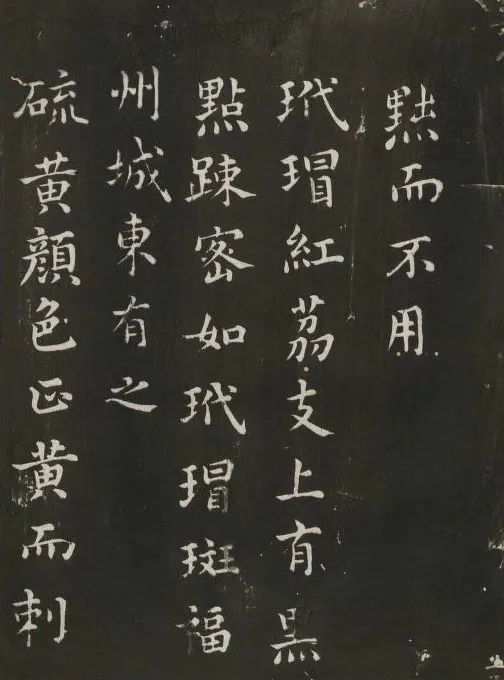 黜而不用
玳瑁紅荔支上有黑
點踈密如玳瑁斑福
州城東有之
硫黄顏色正黄而刺